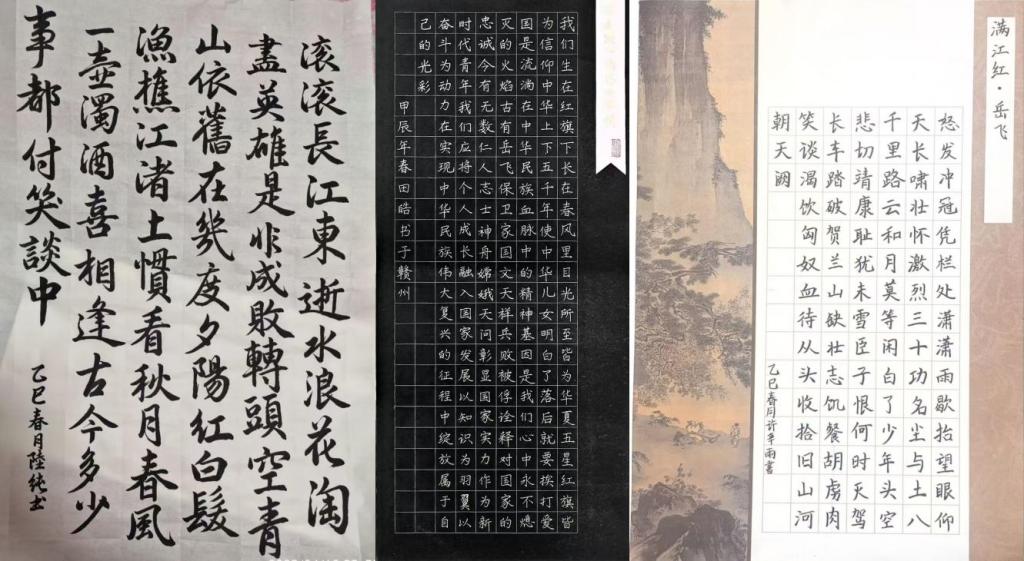 滚滚長江東逝水浪花淘
盡英雄是非成敗轉頭空青
山依舊在幾度夕陽紅白髮
漁樵江渚上慣看秋月春風
一壺濁酒喜相逢古今多少
事都付笑談中
乙巳春月陸純书
我们生在红旗下长在春风里目光所至皆为华夏五星红旗皆
为信仰中华上下五千年使中华儿女明白了落后就要挨打爱
国是流淌在中华民族血脉中的精神基因是我们心中永不熄
灭的火焰古有岳飞保卫家国文天祥兵败被俘诠释对国家的
忠诚今有无数仁人志士神舟嫦娥天问彰显国家实力作为新
时代青年我们应将个人成长融入国家发展以知识为羽翼以
奋斗为动力在实现中华民族伟大复兴的征程中绽放属于自
己的光彩
甲辰年春田皓书于赣州
满江红·岳飞
怒发冲冠凭栏处潇潇雨歇抬望眼仰
天长啸壮怀激烈三十功名尘与土八
千里路云和月莫等闲白了少年头空
悲切靖康耻犹未雪臣子恨何时灭驾
长车踏破贺兰山缺壮志饥餐胡虏肉
笑谈渴饮匈奴血待从头收拾旧山河
朝天阙
乙巳春月许平雨書